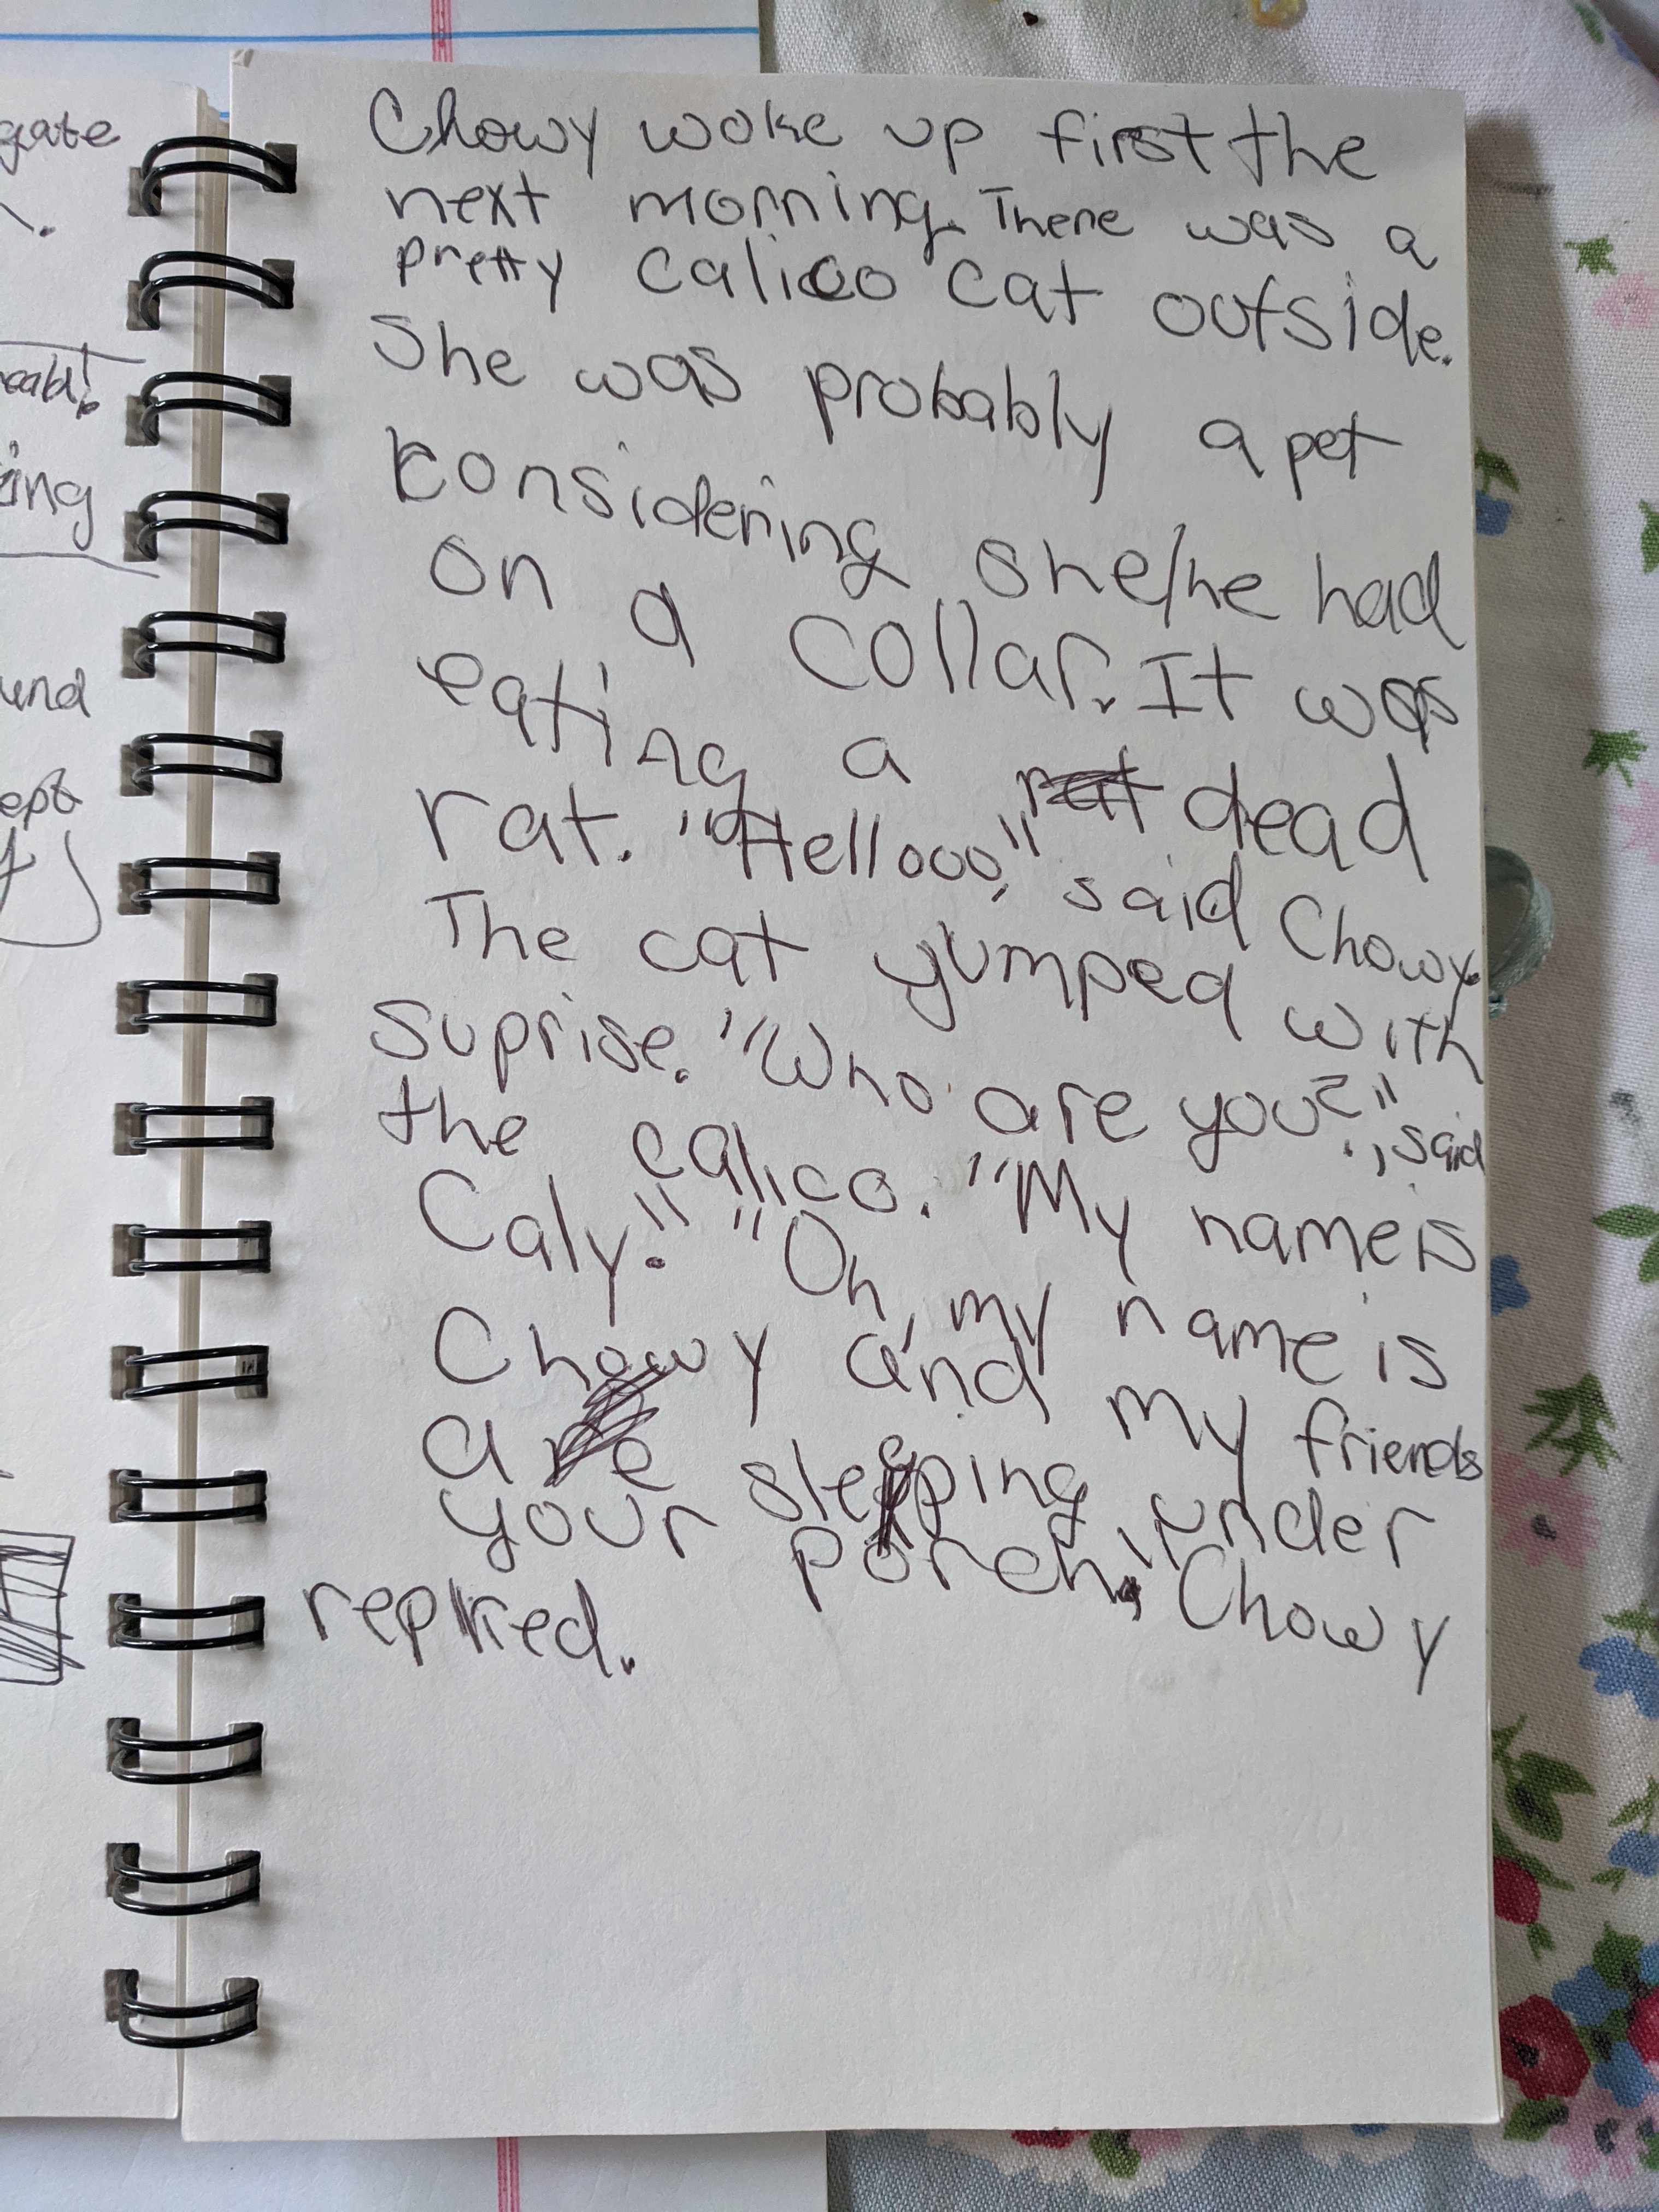 gate
eab!
ing
und
ept
Chowy woke up first the
next morning. There was a
pretty calico cat outside.
She was probably a pet
considering she/he had
on a collar. It was
eating a rat dead
rat. "Hellooo," said Chowy.
The cat yumped with
suprise. "Who are you?", said
the calico. "My name is
Caly." "Oh, my name is
Chowy and my friends
are sleeping under
your porch," Chowy
replied.